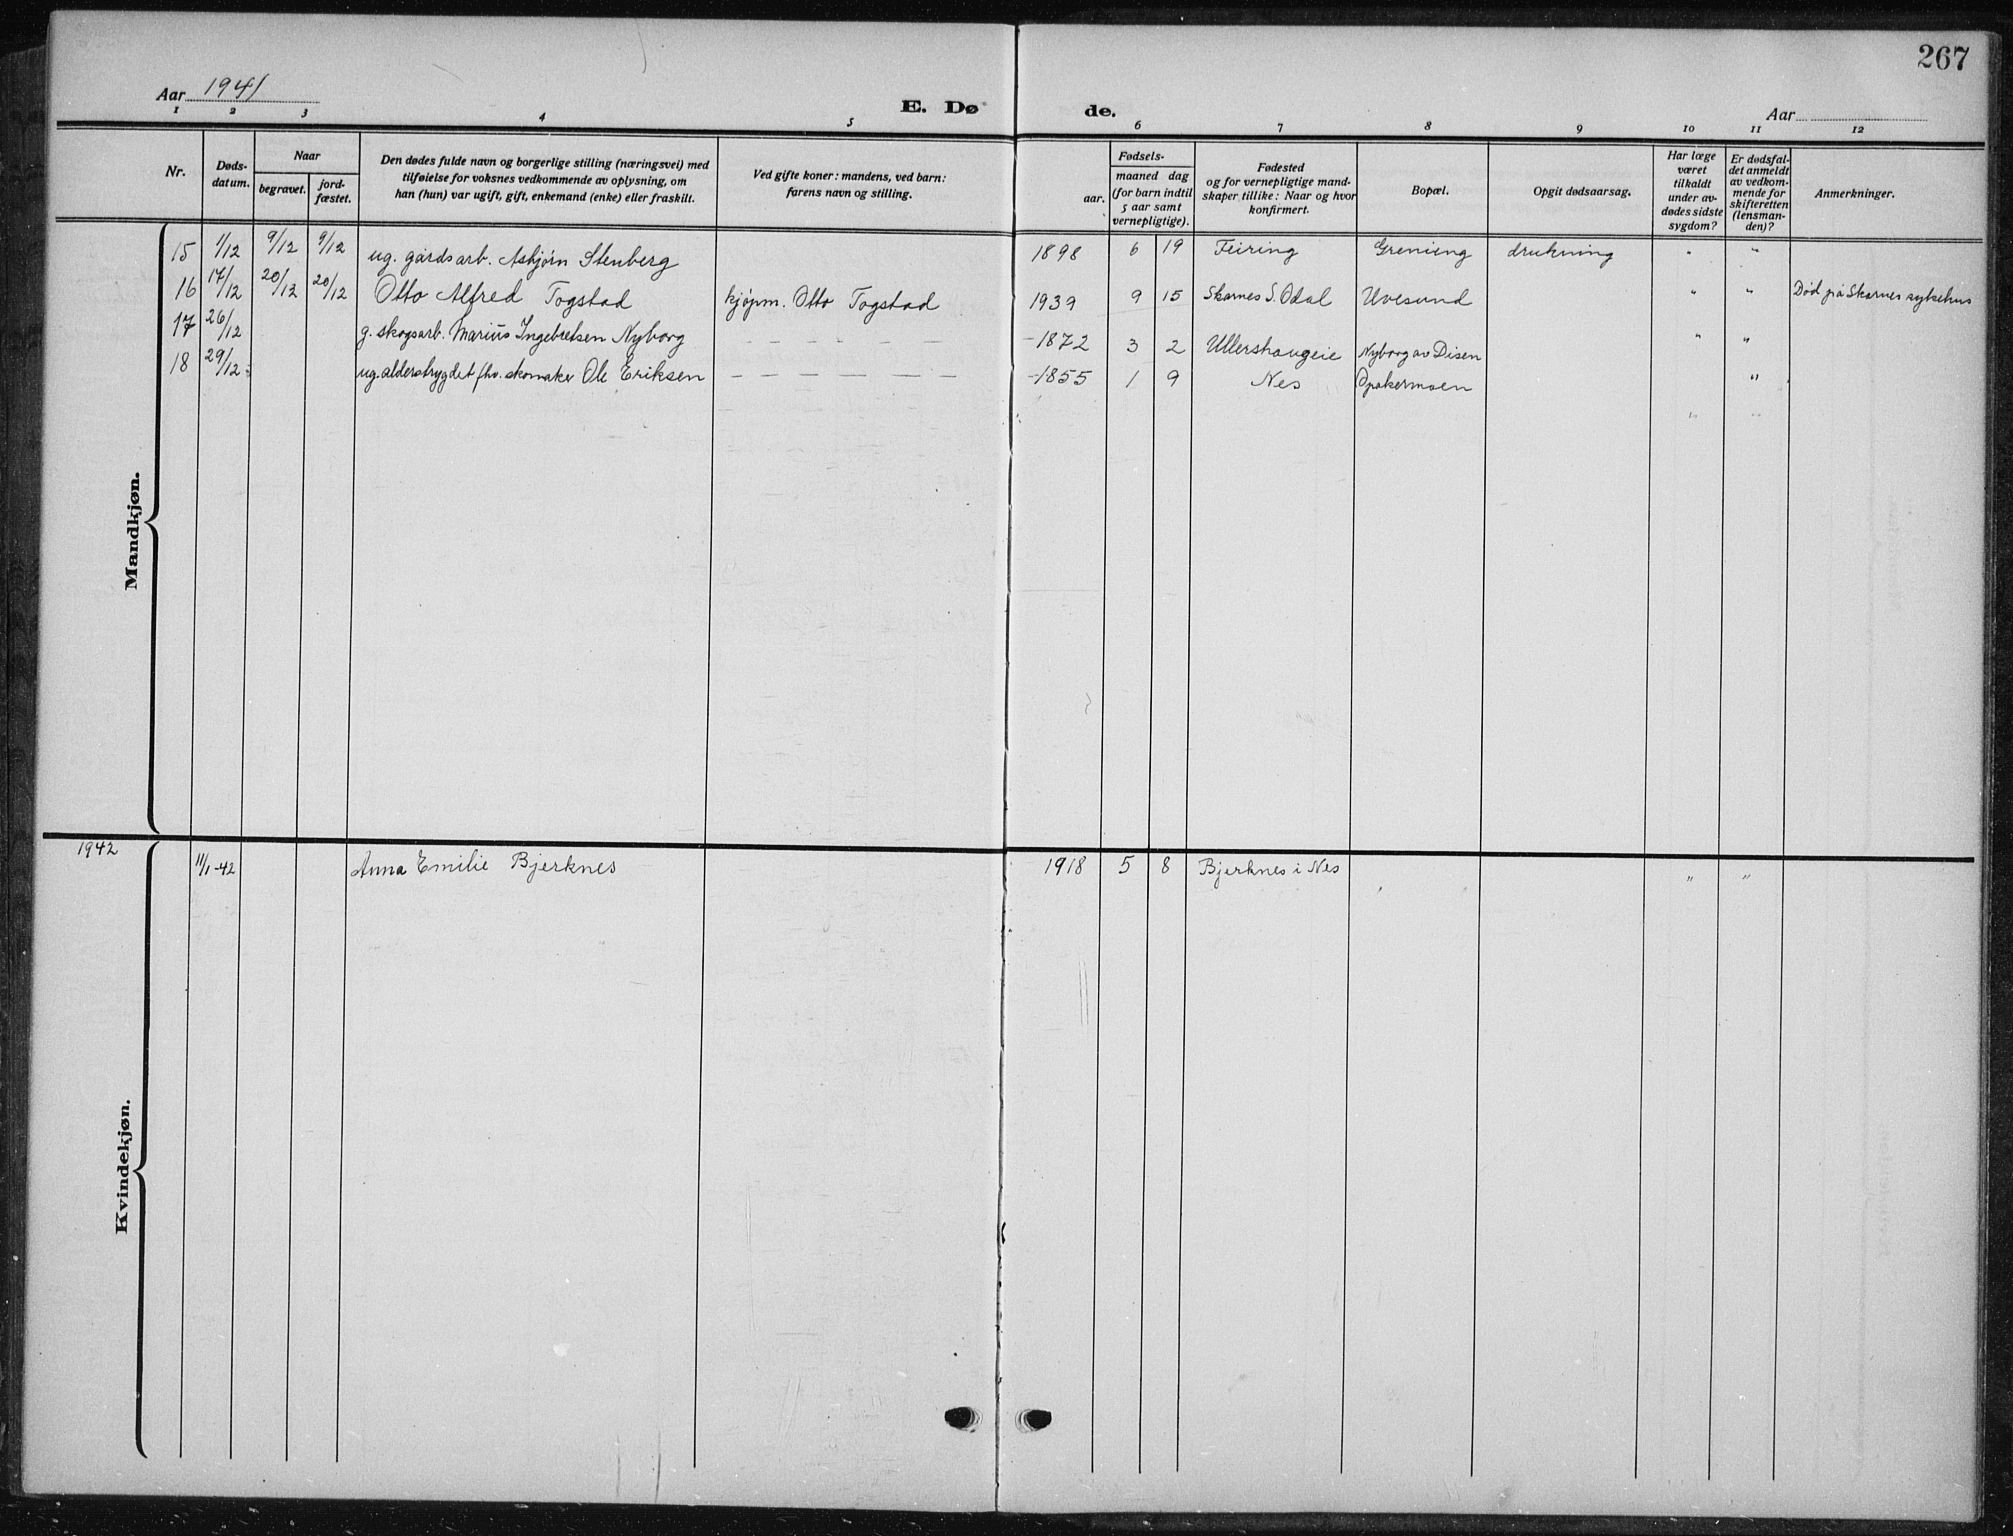 267
Aar 1941
E. Dø de.
Aar
1 2 3 4 5 6 7 8 9 10 11 12
Nr.
Døds-
datum.
Naar
begravet.
jord-
fæstet.
Den dødes fulde navn og borgerlige stilling (næringsvei) med
tilføielse for voksnes vedkommende av oplysning, om
han (hun) var ugift, gift, enkemand (enke) eller fraskilt.
Ved gifte koner: mandens, ved barn:
farens navn og stilling.
aar.
Fødsels-
maaned dag
(for barn indtil
5 aar samt
vernepligtige).
Fødested
og for vernepligtige mand-
skaper tillike: Naar og hvor
konfirmert.
Bopæl.
Opgit dødsaarsag.
Har læge
været
tilkaldt
under av-
dødes sidste
sygdom?
Er dødsfal-
det anmeldt
av vedkom-
mende for
skifteretten
(lensman-
den)?
Anmerkninger.
Mandkjøn.
15 1/12 9/12 9/12 ug. gårdsarb. Asbjørn Stenberg 1898 6 19 Feiring drukning " "
16 17/12 20/12 20/12 Otto Alfred Togstad kjøpm. Otto Togstad 1939 9 15 Skarnes S. Odal Uvesund " " Død på Skarnes sykehus
17 26/12 g. skogsarb. Marius Ingebretsen Nyborg — — — — — — -1872 3 2 Ullershaugeie Nyborg av Disen " "
18 29/12 ug. alderstrygdet fhv. skomaker Ole Eriksen — — — — — — -1855 1 9 Nes Opakermoen "
" "
1942
Kvindekjøn.
11/1-42 Anna Emilie Bjerknes 1918 5 8 Bjerknes i Nes " "